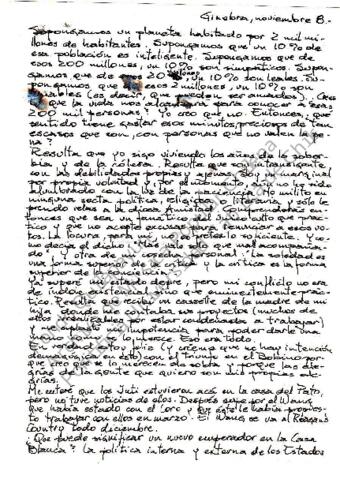 Ginebra, noviembre 8.-
Supongamos un planeta habitado por 2 mil mi-
llones de habitantes. Supongamos que un 10% de
esa población es inteligente. Supongamos que de
esos 200 millones, un 10% son simpáticos. Supon-
gamos, que de 20 millones, un 10% son leales. Su-
pongamos que de esos 2 millones, un 10% son
(es decir, que puedan ser amados). Crees
que la vida nos alcanzará para conocer a esas
200 mil personas? Yo creo que no. Entonces, qué
sentido tiene gastar esos minutos preciosos de tan
escasos que son, con personas que no valen la pe-
na?
Resulta que yo sigo viviendo los años de la sober-
bia, y de la cólera. Resulta que soy intransigente
con las debilidades propias y ajenas. Soy un marginal
por propia voluntad y, por el momento, aún no he sido
alumbrado con la luz de la paciencia. No milito en
ninguna secta política, religiosa o literaria, y sólo le
prendo velas a la diosa Amistad. Comprenderás en-
tonces que sea un fanático del culto que prac-
tico y que no acepto excusas para renunciar a esos vo-
tos. La locura, para mí, no es pretexto suficiente. Y co-
mo decía el dicho: "Más vale solo que mal acompaña-
do". Y otra de mi cosecha personal: "La soledad es
una forma superior de la crítica y la crítica es la forma
superior de la conciencia".
Ya superé mi estado depre, pero mi conflicto no era
de índole existencial sino que eminentemente prác-
tico. Resulta que recibí un cassette de la madre de mi
hija donde me contaba sus proyectos (muchos de
ellos irrealizables por estar condenada a trabajar)
y me aplastó mi impotencia para poder darle una
mano como lo merece. Eso era todo.
En verdad estoy feliz (y créeme que no hay intención
demagógica en esto) con el triunfo en el Bolsino por-
que creo que se lo merecían de sobra y porque las ale-
grías de la gente que quiero son mis propias ale-
grías.
Me enteré que los Juti estuvieron acá en la casa del Pato,
pero no tuve noticias de ellos. Después supe por el Wang
que había estado con el Loro y que éste le había propues-
to trabajar con ellos en marzo. El Wang se va al Reagan's
Country todo diciembre.
¿Qué puede significar un nuevo emperador en la Casa
Blanca? La política interna y externa de los Estados